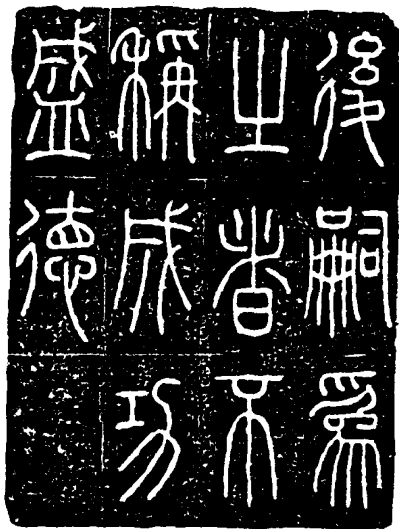 後嗣為
之者不
稱成功
盛德